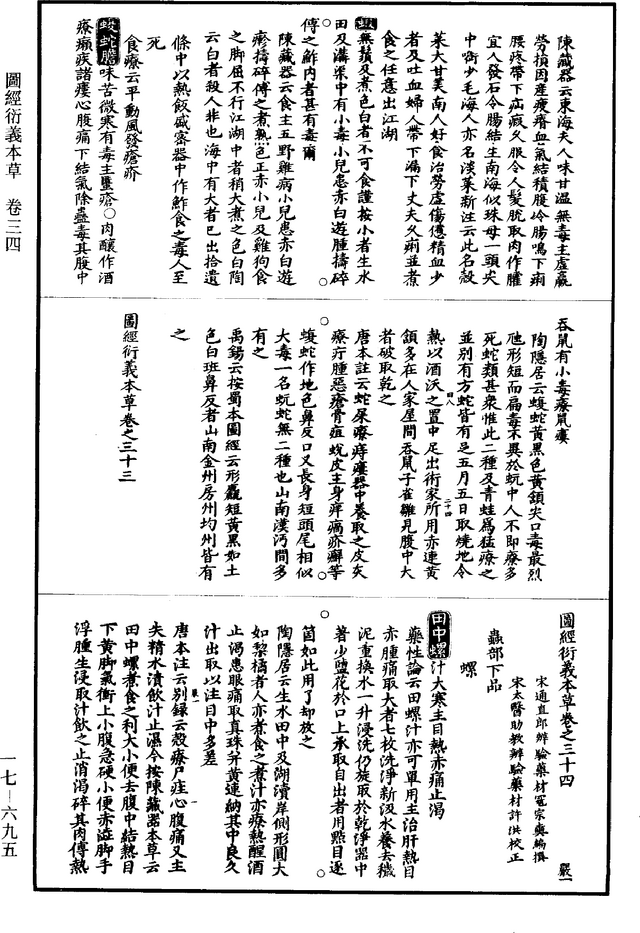 陳藏器云東海夫人味甘溫無毒主虛羸
勞損因産瘦瘠血氣結積腹冷腸鳴下痢
腰疼帶下疝瘕久服令人髮脫取肉作臛
宜人發石令腸結生南海似珠母一頭尖
中銜少毛海人亦名淡菜新注云此名殼
菜大甘美南人好食治勞虛傷憊精血少
者及吐血婦人帶下漏下丈夫久痢並煮
食之任意出江湖
蚬無蘋及煮色白者不可食謹按小者生水
田及溝渠中有小毒小兒患赤白遊腫擣碎
傅之鮓內者甚有毒爾
陳藏器云食主五野雞病小兒患赤白遊
疹擣碎傅之煮熟色正赤小兒及雞狗食
之脚屈不行江湖中者稍大煮之色白陶
云白者殺人非也海中有大者已出拾遺
條中以熱飯盛密器中作鮓食之毒人至
死
食療云平動風發瘡疥
蝮蛇膽味苦微寒有毒主䘌瘡○肉釀作酒
療癩疾諸瘻心腹痛下結氣除蠱毒其腹中
吞鼠有小毒療鼠瘻
陶隱居云蝮蛇黃黑色黃頷尖口毒最烈
虺形短而扁毒不異於蚖中人不即療多
死蛇類甚衆惟此二種及青蛙爲猛療之
並別有方蛇皆有足五月五日取燒地令
熱以酒沃之置中足出術家所用赤連黃
頷多在人家屋間吞鼠子雀雛見腹中大
者破取乾之
唐本註云蛇屎療痔瘻器中養取之皮灰
療疔腫惡瘡骨疽蛻皮主身痒瘑疥癬等
蝮蛇作地色鼻反口又長身短頭尾相似
大毒一名蚖蛇無二種也山南漢沔間多
有之
禹錫云按蜀本圖經云形麤短黃黑如土
色白班鼻反者山南金州房州均州皆有
之
圖經衍義本草卷之三十三
圖經衍義本草卷之三十四 嚴一
宋通直郎辨驗藥材寇宗奭編撰
宋太醫助教辨驗藥材許洪校正
蟲部下品
螺
田中螺汁大寒主目熱赤痛止渴
藥性論云田螺汁亦可單用主治肝熱目
赤腫痛取大者七枚洗淨新汲水養去穢
泥重換水一升浸洗仍旋取於乾淨器中
著少鹽花於口上承取自出者用點目逐
箇如此用了却放之
陶隱居云生水田中及湖瀆岸側形圓大
如梨橘者人亦煮食之煮汁亦療熱醒酒
止渴患眼痛取真珠并黃連納其中良久
汁出取以注目中多差
唐本注云别録云殼療尸疰心腹痛又主
失精水漬飲汁止濕今按陳藏器本草云
田中螺煮食之利大小便去腹中結熱目
下黃脚氣衝上小腹急硬小便赤澁脚手
浮腫生浸取汁飲之止消渴碎其肉傅熱
圖經衍義本草 卷三四
一七—六九五